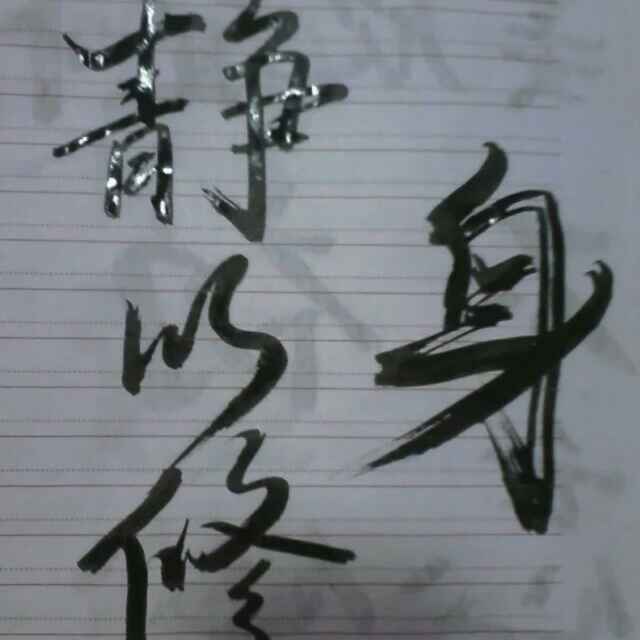 静以修
身